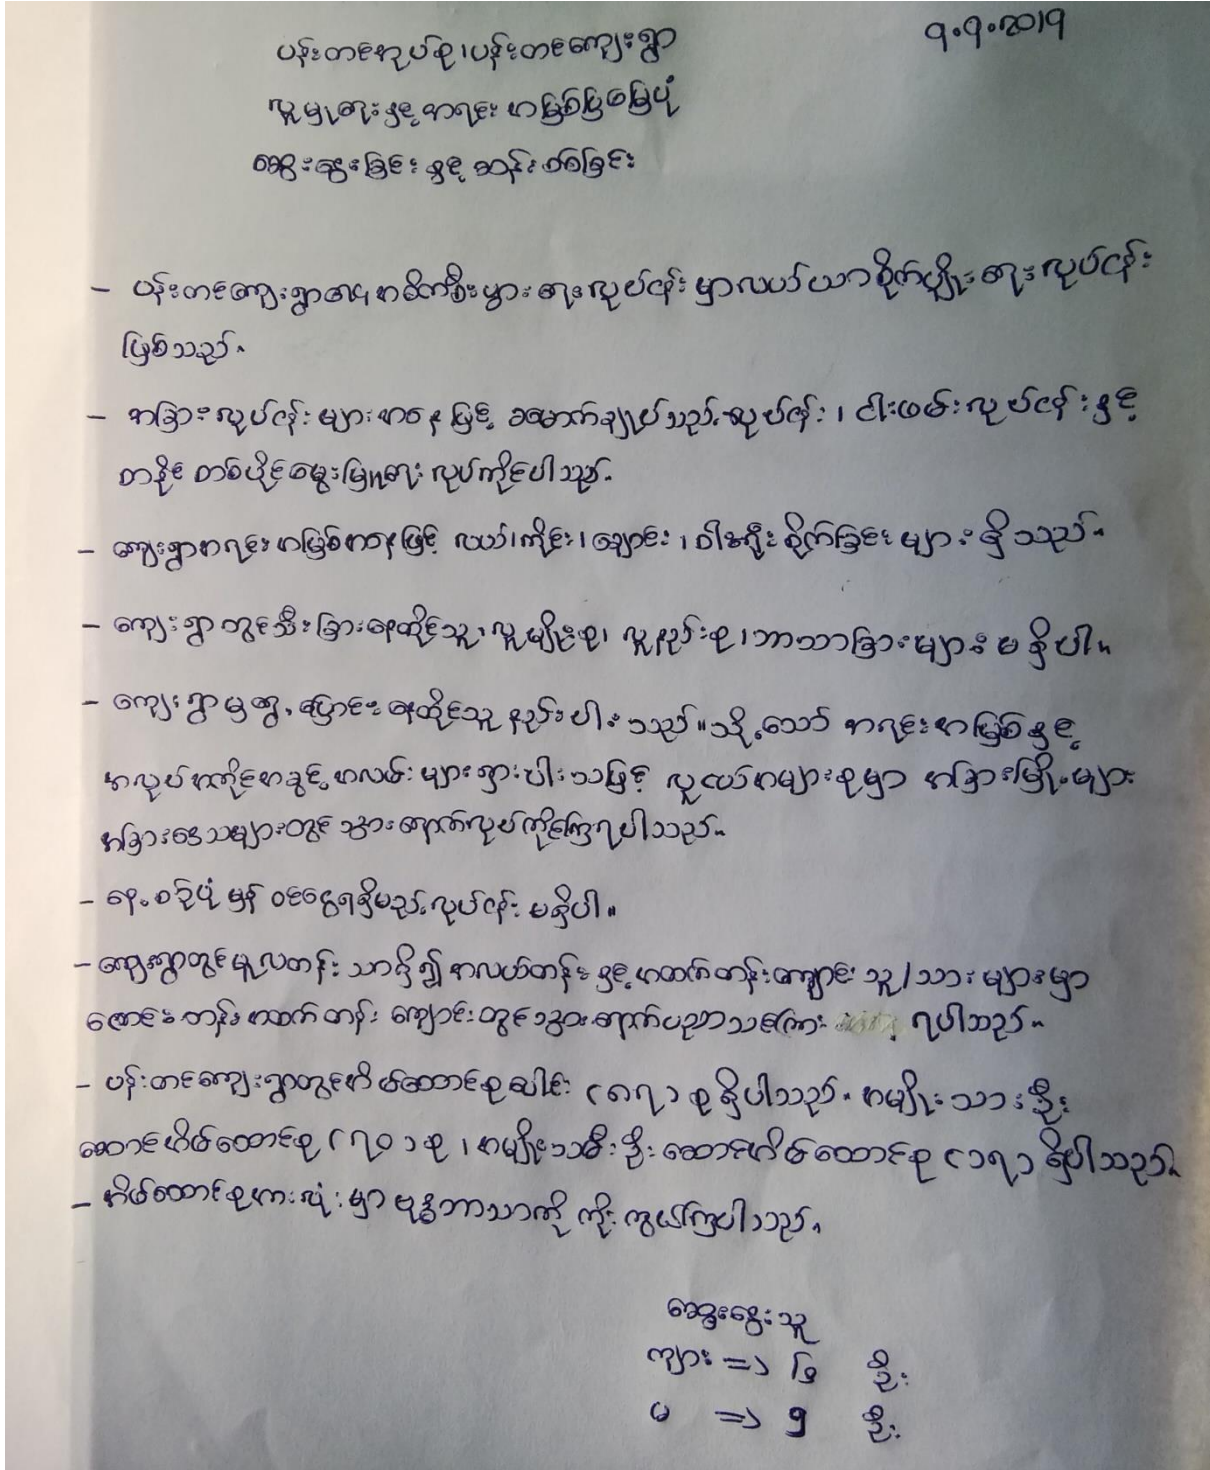 ၇.၇.၂၀၁၇
ပန်းတင်အုပ်စု၊ပန်းတင်ကျေးရွာ
လူမှုရေးနှင့်အရင်းအမြစ်ပြမြေပုံ
ဆွေးနွေးခြင်းနှင့်ဆန်းစစ်ခြင်း
– ပန်းတင်ကျေးရွာ၏အဓိကစီးပွားရေးလုပ်ငန်းမှာလယ်ယာစိုက်ပျိုးရေးလုပ်ငန်း
ဖြစ်သည်။
– အခြားလုပ်ငန်းများအနေဖြင့် ခမောက်ချုပ်သည့်လုပ်ငန်း၊ ငါးဖမ်းလုပ်ငန်းနှင့်
တနိုင်တစ်ပိုင်မွေးမြူရေးလုပ်ကိုင်ပါသည်။
– ကျေးရွာအရင်းအမြစ်အနေဖြင့် လယ်၊ကိုင်း၊ချောင်း၊ဝါးရုံးစိုက်ခြင်းများရှိသည်။
– ကျေးရွာတွင်သီးခြားနေထိုင်သူ၊လူမျိုးစု၊ လူနည်းစု၊ဘာသာခြားများမရှိပါ။
– ကျေးရွာမှရွှေ့ပြောင်းနေထိုင်သူနည်းပါးသည်။သို့သော် အရင်းအမြစ်နှင့်
အလုပ်အကိုင်အခွင့်အလမ်းများရှားပါးသဖြင့် လူငယ်အများစုမှာ အခြားမြို့များ
အခြားဒေသများတွင်သွားရောက်လုပ်ကိုင်ကြရပါသည်။
– နေ့စဉ်ပုံမှန် ဝင်ငွေရရှိမည့်လုပ်ငန်း မရှိပါ။
– ကျေးရွာတွင်မူလတန်းသာရှိ၍အလယ်တန်းနှင့်အထက်တန်းကျောင်းသူ/သားများမှာ
ဇောင်းတန်းအထက်တန်းကျောင်းတွင်သွားရောက်ပညာသင်ကြား ရပါသည်။
– ပန်းတင်ကျေးရွာတွင်အိမ်ထောင်စုပေါင်း (၈၇) စုရှိပါသည်။အမျိုးသားဦး
ဆောင်အိမ်ထောင်စု (၇၀) စု၊အမျိုးသမီးဦးဆောင်အိမ်ထောင်စု (၁၇) ရှိပါသည်။
– အိမ်ထောင်စုအားလုံးမှာဗုဒ္ဓဘာသာကိုကိုးကွယ်ကြပါသည်။
ဆွေးနွေးသူ
ကျား => ဦး
မ => ဦး